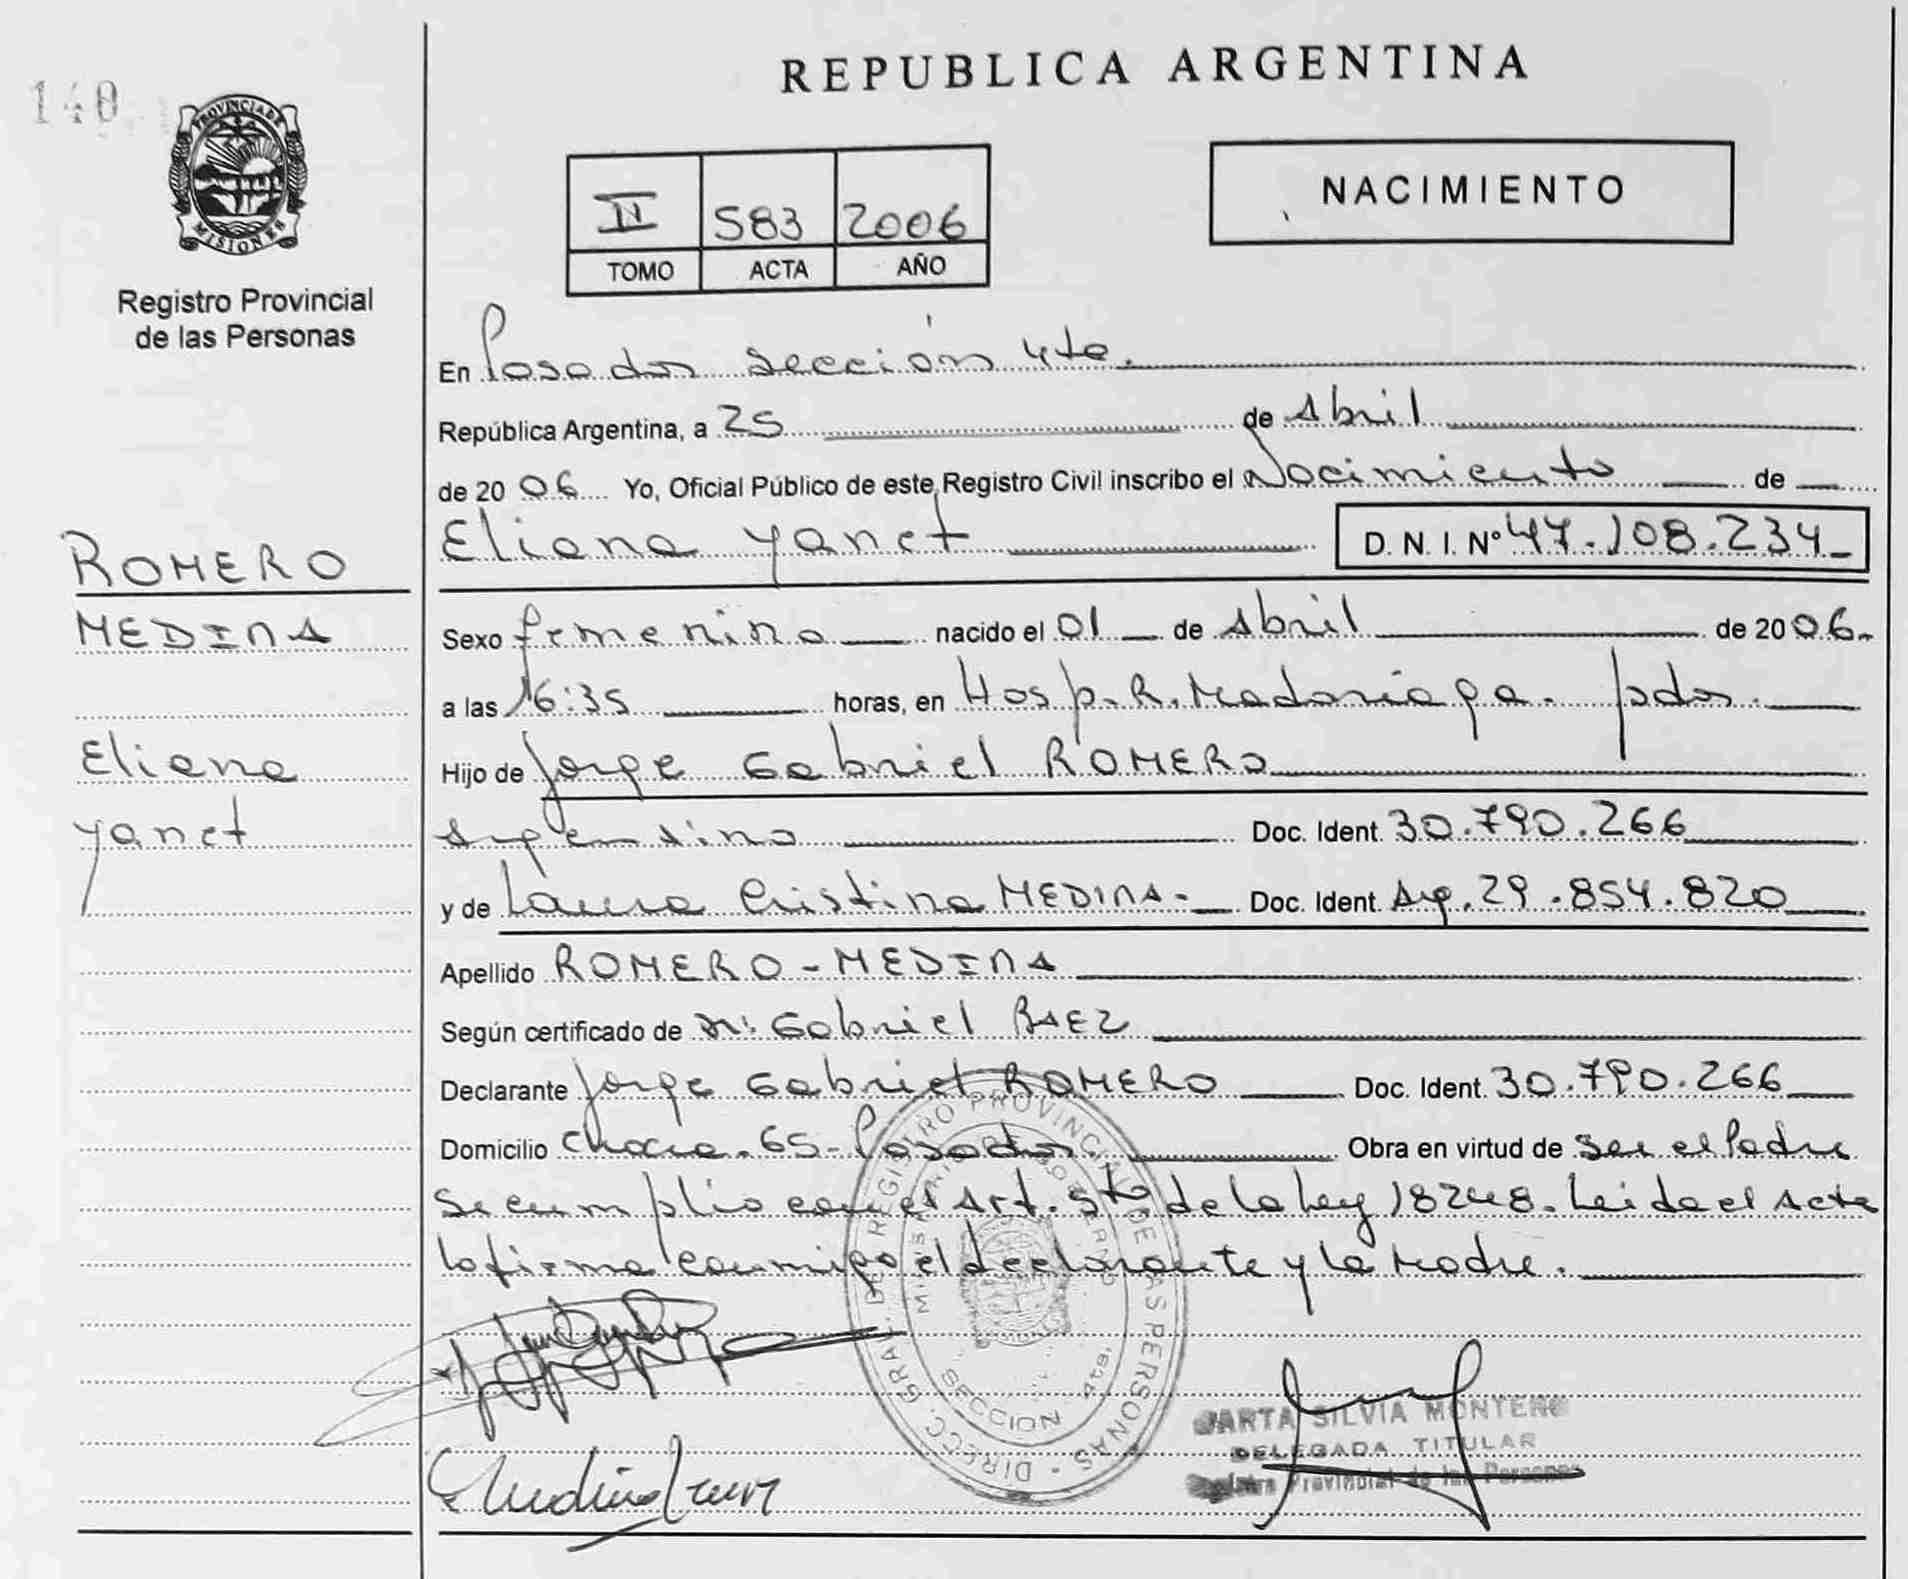 REPUBLICA ARGENTINA
140
PROVINCIA DE
MISIONES
Registro Provincial
de las Personas
II 583 2006
TOMO ACTA AÑO
NACIMIENTO
En Posadas sección 4ta.
República Argentina, a 25 de Abril
de 2006 Yo, Oficial Público de este Registro Civil inscribo el Nacimiento de
Eliana Yanet D. N. I. Nº 47.108.234
ROMERO
MEDINA
Eliana
Yanet
Sexo femenino nacido el 01 de Abril de 2006.
a las 16:35 horas, en Hosp. R. Madariaga. pdas.
Hijo de Jorge Gabriel ROMERO
Argentino Doc. Ident. 30.790.266
y de Laura Cristina MEDINA- Doc. Ident. Arg. 29.854.820
Apellido ROMERO - MEDINA
Según certificado de Gabriel BAEZ
Declarante Jorge Gabriel ROMERO Doc. Ident. 30.790.266
Domicilio Chacra. 65- Posadas. Obra en virtud de ser el Padre
Se cumplio con el Art. 5to de la Ley 18248. Leida el Acta
la firma conmigo el declarante y la Madre.
DIRECC. GRAL. DE REGISTRO PROVINCIAL DE LAS PERSONAS
SECCION 4ta.
MARTA SILVIA MONTERO
DELEGADA TITULAR
Registro Provincial de las Personas